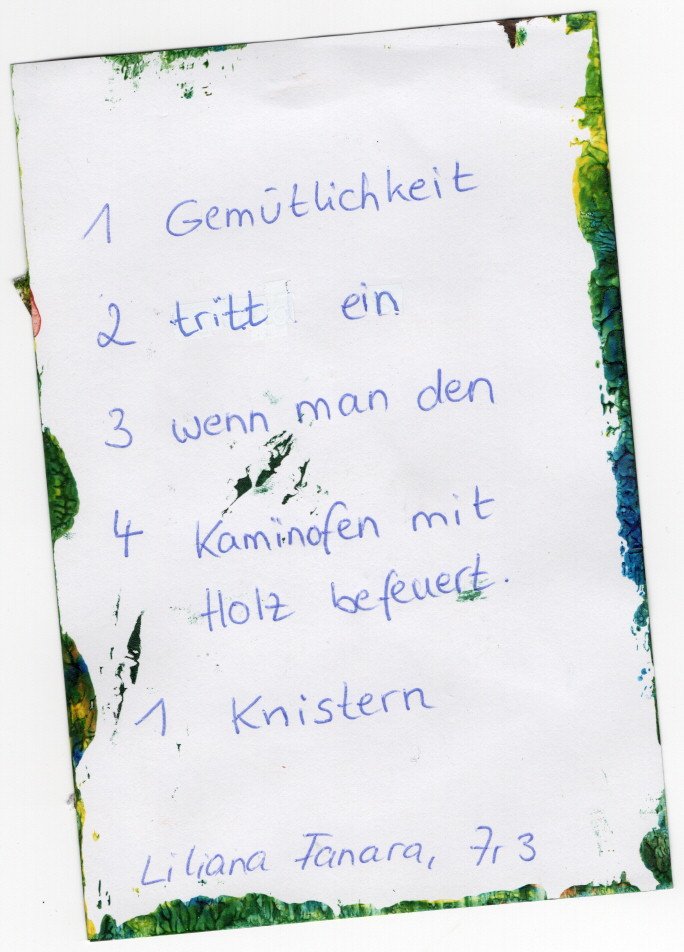 1 Gemütlichkeit
2 tritt ein
3 wenn man den
4 Kaminofen mit
Holz befeuert.
1 Knistern
Liliana Fanara, 7r3